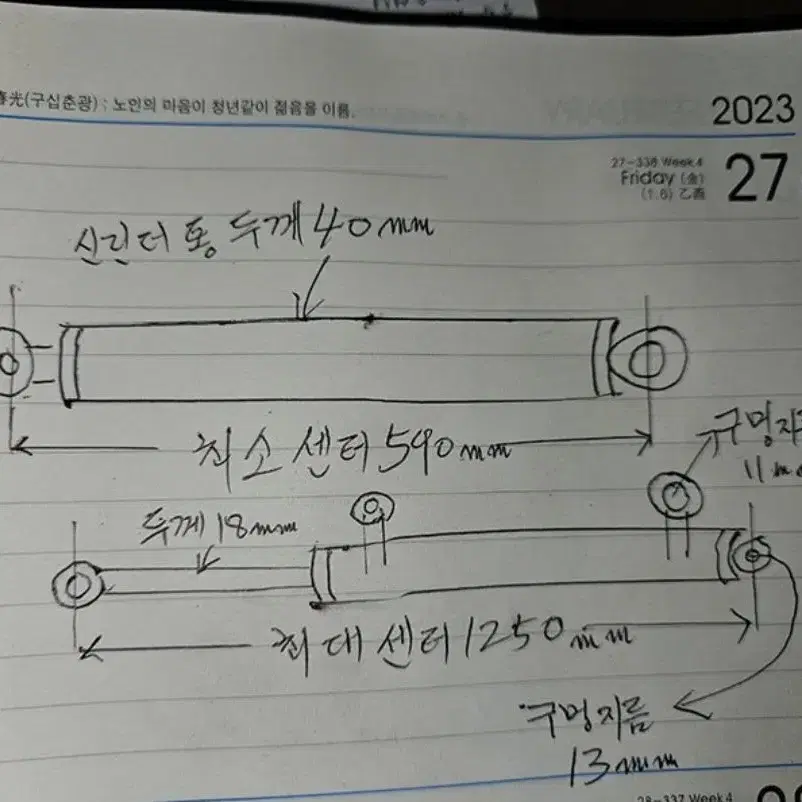 春光(구십춘광) : 노인의 마음이 청년같이 젊음을 이름.
2023
27-338 Week 4
Friday (金)
(1.6) 乙酉
27
신린더 통 두께 40mm
최소 센터 590mm
구멍지
11m
두께 18mm
최대 센터 1250mm
구멍지름
13mm
28-337 Week 4